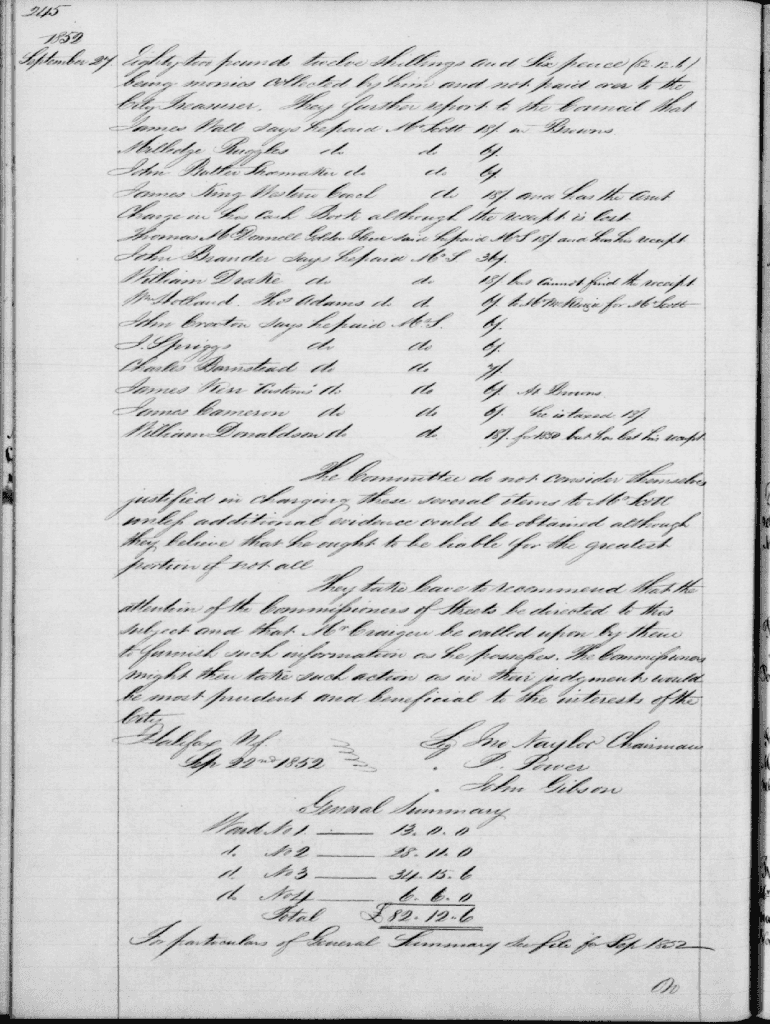 245
1852
September 27 Eighty two pounds twelve shillings and Six pence (82.12.6)
being monies collected by him and not paid over to the
City Treasurer. They further report to the Council that
James Wall says he paid Mr Scott 18/ in Browns
Milledge Ruggles do do 6/
John Butler Shoemaker do do 6/
James King Western Coach do 18/ and has the amt
Charge in his Cash Book although the receipt is lost
Thomas McDonnell Golden Fleece said he paid Mr S 18/ and has his receipt
John Brander says he paid Mr S 36/
William Drake do do 18/ but cannot find the receipt
Wm Holland. Thos Adams do do 6/ to Mr McKenzie for Mr Scott
John Crowton says he paid Mr S. 6/
J. Spriggs do do 6/
Charles Barnstead do do 7/
James Kerr "Customs" do do 6/ At
James Cameron do do 6/ he is taxed 18/
William Donaldson do do 18/ for 1850 but has lost his receipt
The Committee do not consider themselves
justified in charging these several items to Mr Scott
unless additional evidence could be obtained although
they believe that he ought to be liable for the greatest
portion if not all
They take leave to recommend that the
attention of the Commissioners of Streets be directed to this
subject and that Mr Craigen be called upon by them
to furnish such information as he possesses. The Commissioners
might then take such action as in their judgments would
be most prudent and beneficial to the interests of the
City
Halifax N.S. Sg Jno Naylor Chairman
Sep 22nd 1852 " P. Power
" John Gibson
General Summary
Ward No 1 — 13. 0. 0
do No 2 — 28. 11. 0
do No 3 — 34. 15. 6
do No 4 — 6. 6. 0
Total £82. 12. 6
For particulars of General Summary see file for Sep 1852